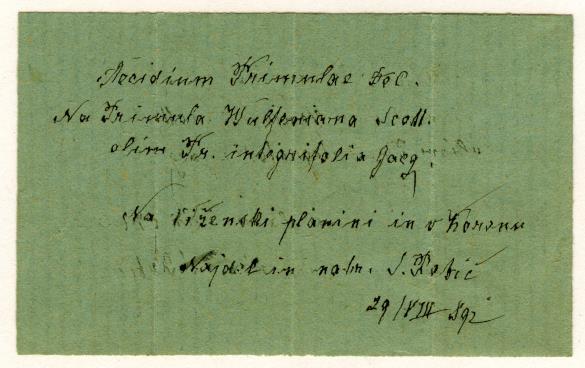 Aecidium Primulae DC.
Na Primula Wulfeniana Scott.
olim Pr. integrifolia Jacq.
Na planini in v Korenu
Najdel in nabr. S. Robič
29/VIII 892